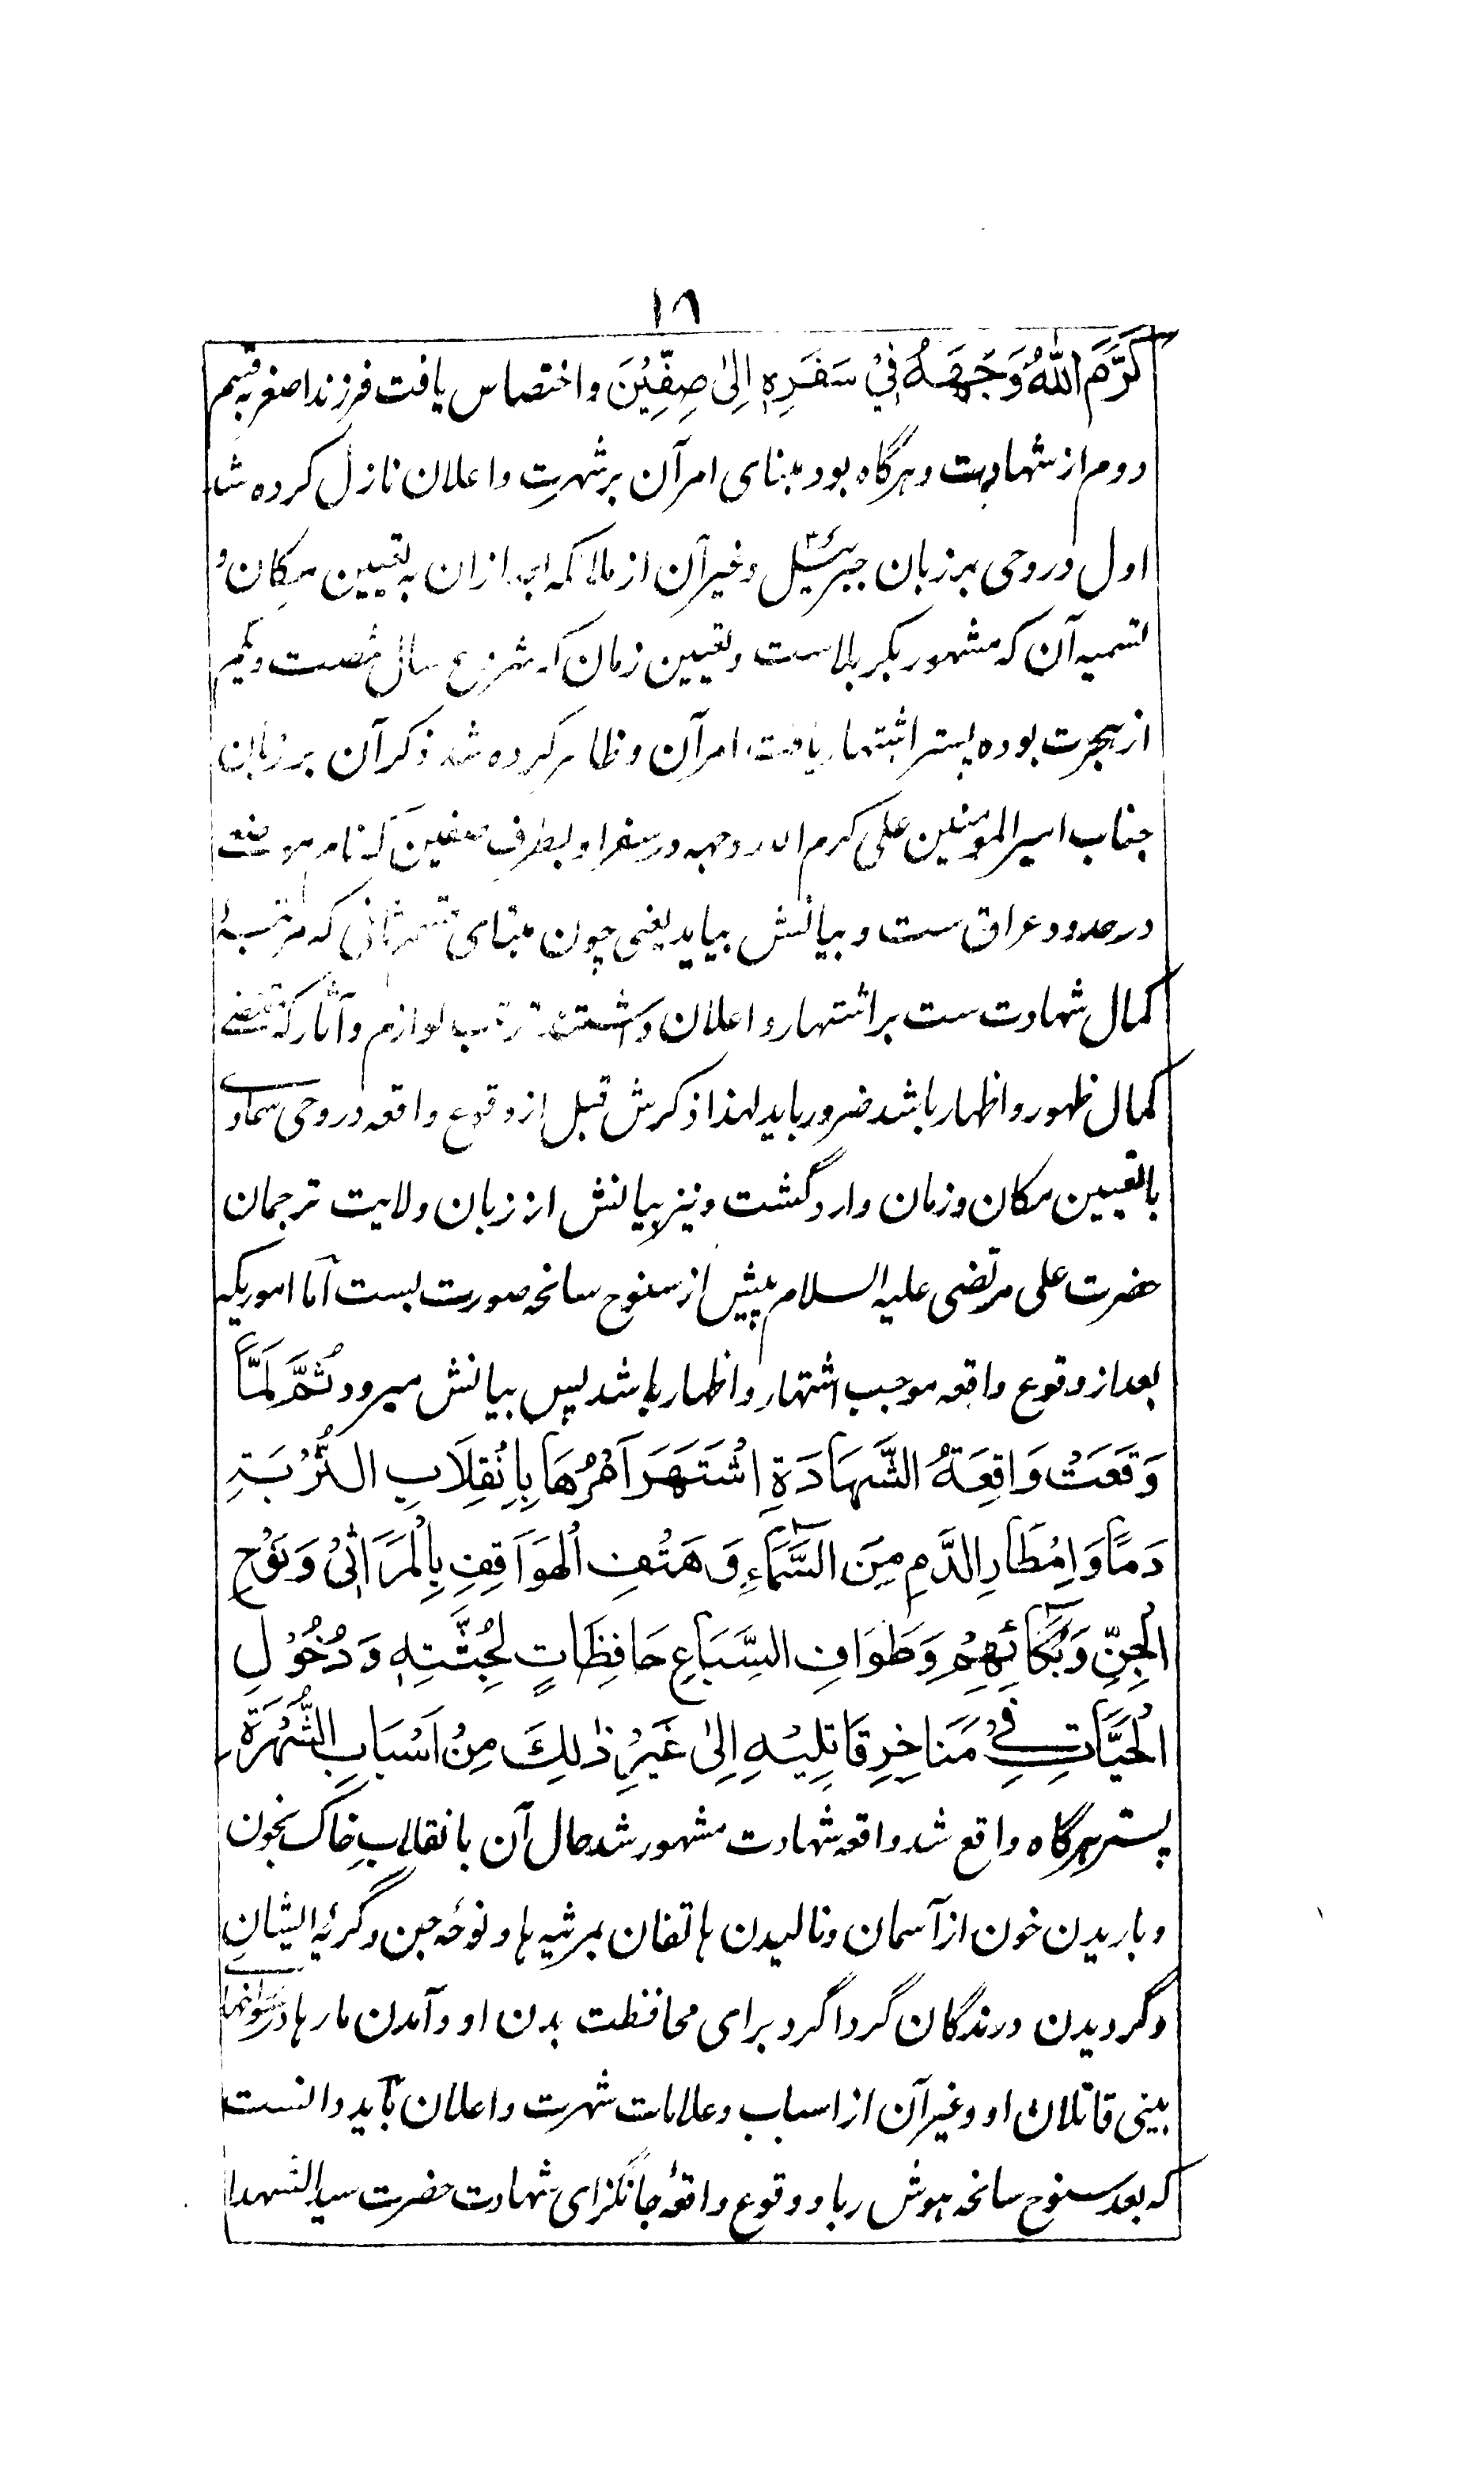 ۱۸
كَرَّمَ اللهُ وَجْهَهُ فِيْ سَفَرِهٖ اِلٰى صِفِّيْنَ و اختصاص یافت فرزند اصغر به قسم
دوم از شهادت و هرگاه بود مبنای امر آن بر شهرت و اعلان نازل کرده شد
اول در وحی بر زبان جبرئیل و غیر آن از ملائکه بعد ازان به تعیین مکان و
تسمیه آن که مشهور بکربلاست و تعیین زمان که شروع سال شصت و یکم
از هجرت بوده پستر اشتهار یافت امر آن و ظاهر کرده شد ذکر آن بر زبان
جناب امیرالمؤمنین علی کرم الله وجهه در سفر او بطرف صفین که نام موضعی
در حدود عراق ست و بیانش بیاید یعنی چون مبنای قسم ثانی که مرتبهٔ
کمال شهادت ست بر اشتهار و اعلان داشتند ترتب لوازم و آثار که مقتضی
کمال ظهور و اظهار باشد ضرور باید لهذا ذکرش قبل از وقوع واقعه در وحی سماوی
با تعیین مکان و زمان وارد گشت و نیز بیانش از زبان ولایت ترجمان
حضرت علی مرتضی علیه السلام پیش از سنوح سانحه صورت بست اما اموریکه
بعد از وقوع واقعه موجب اشتهار و اظهار باشد پس بیانش میرود ثُمَّ لَمَّا
وَقَعَتْ وَاقِعَةُ الشَّهَادَةِ اشْتَهَرَ اَمْرُهَا بِاِنْقِلَابِ التُّرْبَةِ
دَمًا وَ اِمْطَارِ الدَّمِ مِنَ السَّمَآءِ وَ هَتْفِ الْهَوَاتِفِ بِالْمَرَاثِیْ وَ نَوْحِ
الْجِنِّ وَ بُكَآئِهِمْ وَ طَوَافِ السِّبَاعِ حَافِظَاتٍ لِجُثَّتِهٖ وَ دُخُوْلِ
الْحَيَّاتِ فِيْ مَنَاخِرِ قَاتِلِيْهِ اِلٰى غَيْرِ ذٰلِكَ مِنْ اَسْبَابِ الشُّهْرَةِ
پستر هرگاه واقع شد واقعه شهادت مشهور شد حال آن بانقلاب خاک بخون
و باریدن خون از آسمان و نالیدن هاتفان بمرثیه ها و نوحهٔ جن و گریهٔ ایشان
و گردیدن درندگان گرداگرد برای محافظت بدن او و آمدن مارها در سوراخهای
بینی قاتلان او و غیر آن از اسباب و علامات شهرت و اعلان باید دانست
که بعد سنوح سانحه هوش ربا و وقوع واقعهٔ جانگزای شهادت حضرت سیدالشهدا